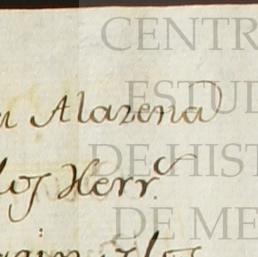 CENTR
u Alazena
ESTUD
los Herr.
DE HIST
DE ME